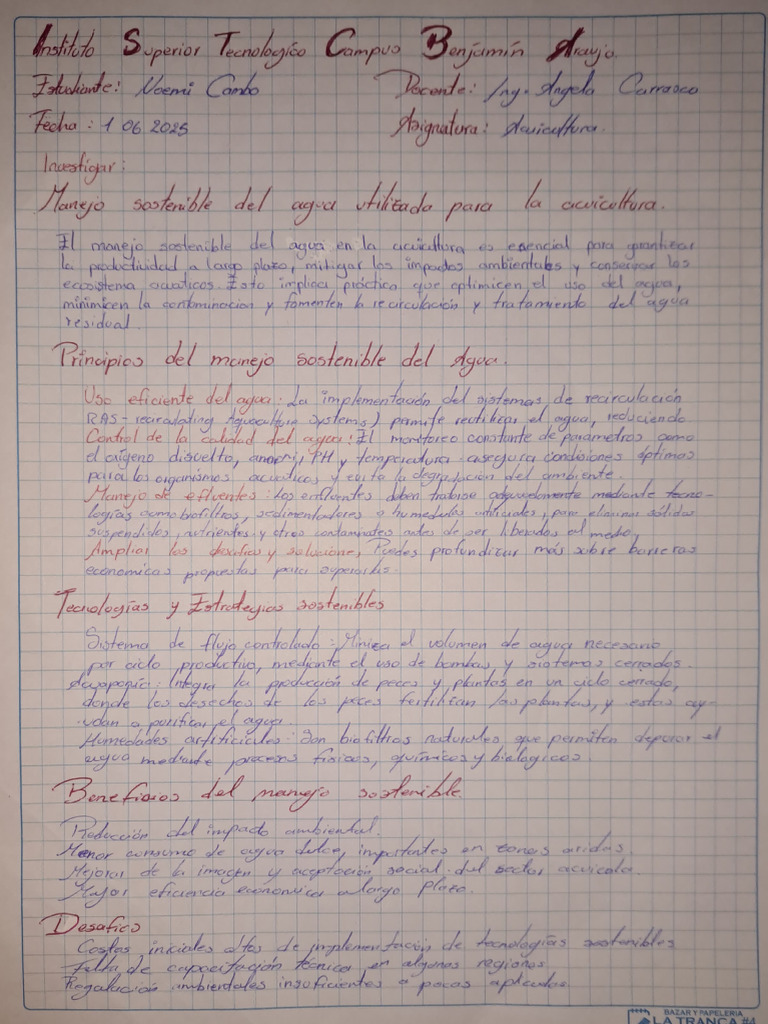 Instituto Superior Tecnologico Campus Benjamín Araujo.
Estudiante: Noemi Cambo Docente: Ing. Angela Carrasco
Fecha: 1 06 2025 Asignatura: Acuicultura.
Investigar:
Manejo sostenible del agua utilizada para la acuicultura.
El manejo sostenible del agua en la acuicultura es esencial para garantizar
la productividad a largo plazo, mitigar los impactos ambientales y conservar los
ecosistema acuaticos. Esto implica práctica que optimicen el uso del agua,
minimicen la contaminacion y fomenten la recirculación y tratamiento del agua
residual.
Principios del manejo sostenible del Agua.
Uso eficiente del agua: La implementación del sistemas de recirculación
RAS- recirculating Aquaculture Systems) permite reutilizar el agua, reduciendo
Control de la calidad del agua: El monitoreo constante de parametros como
el oxígeno disuelto, PH y temperatura asegura condiciones óptimas
para los organismos acuaticos y evita la degradacion del ambiente.
Manejo de efluentes: Los efluentes deben tratarse adecuadamente mediante tecno-
logías como biofiltros, sedimentadores o humedales para eliminar sólidos
suspendidos, nutrientes y otros contaminantes antes de ser liberados al medio,
Ampliar los desafios y solucione, Puedes profundizar más sobre barreras
economicas propuestas para superarlas.
Tecnologías y Estrategias sostenibles
Sistema de flujo controlado: Minimiza el volumen de agua necesario
por ciclo productivo, mediante el uso de bombas, y sistemas cerrados.
Acuaponía: Integra la producción de peces y plantas en un ciclo cerrado,
donde los desechos de los peces fertilizan las plantas, y estas ay-
udan a purificar el agua.
Humedades artificiales: Son biofiltros naturales que permiten depurar el
agua mediante procesos físicos, químicos y biologicos.
Beneficios del manejo sostenible
Reducción del impacto ambiental.
Menor consumo de agua dulce, importantes en zonas aridas.
Mejorar de la imagen y aceptación social del sector acuicola.
Mayor eficiencia economica a largo plazo.
Desafios
Costos iniciales altos de implementación de tecnologías sostenibles
Falta de capacitación técnica en algunas regiones
Regulación ambientales insuficientes o pocas aplicadas.
BAZAR Y PAPELERIA
LA TRANCA #4